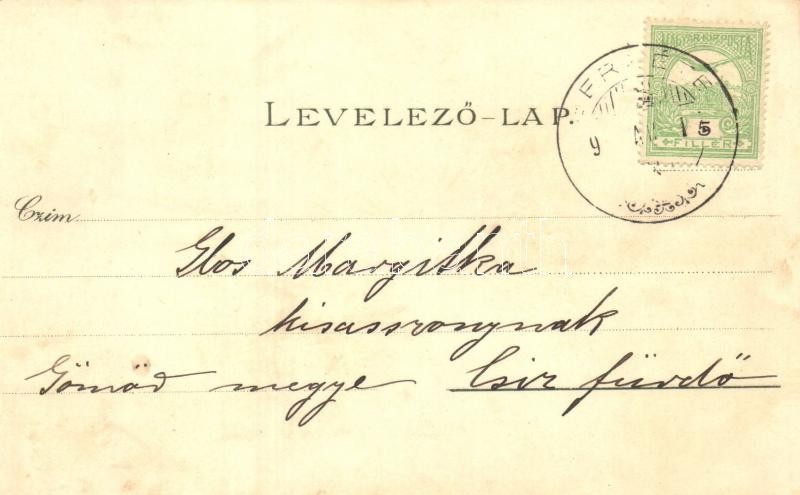 MAGYAR KIR. POSTA
LEVELEZŐ-LAP.
5
FILLÉR
Czim
Glos Margitka
kisasszonynak
Gömör megye Csiz fürdő